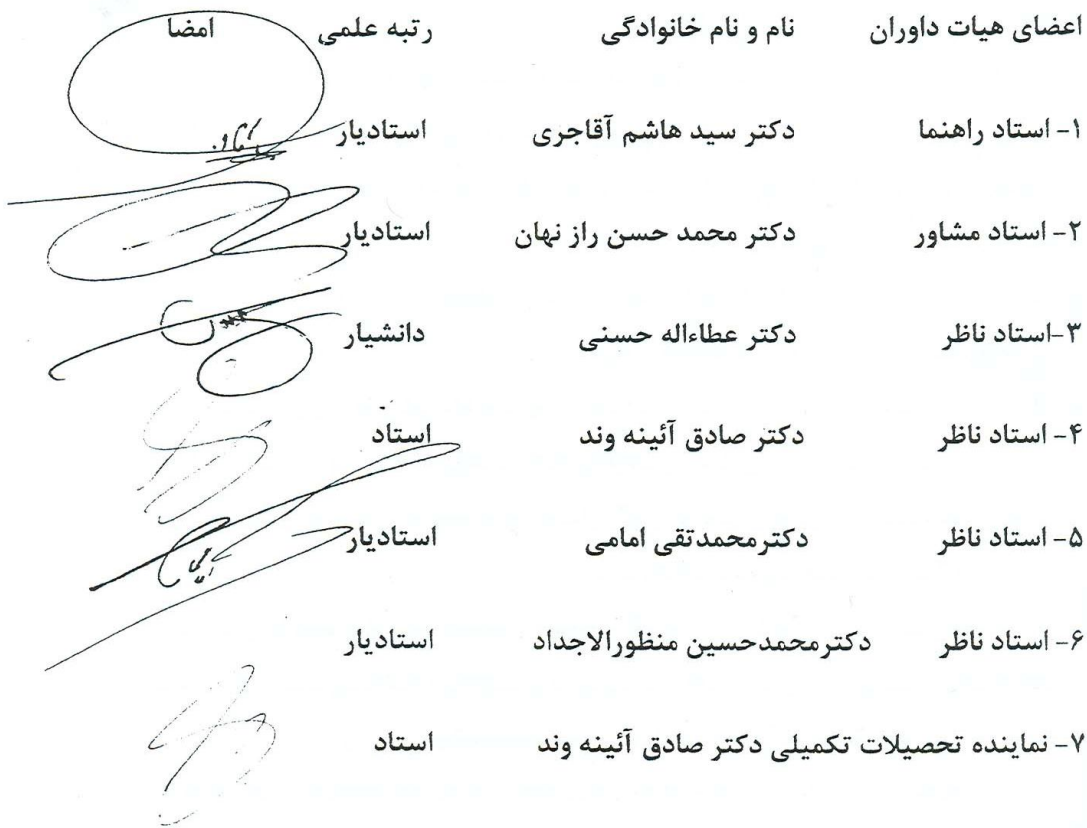 اعضای هیات داوران نام و نام خانوادگی رتبه علمی امضا
۱- استاد راهنما دکتر سید هاشم آقاجری استادیار
۲- استاد مشاور دکتر محمد حسن راز نهان استادیار
۳-استاد ناظر دکتر عطاءاله حسنی دانشیار
۴- استاد ناظر دکتر صادق آئینه وند استاد
۵- استاد ناظر دکترمحمدتقی امامی استادیار
۶- استاد ناظر دکترمحمدحسین منظورالاجداد استادیار
۷- نماینده تحصیلات تکمیلی دکتر صادق آئینه وند استاد